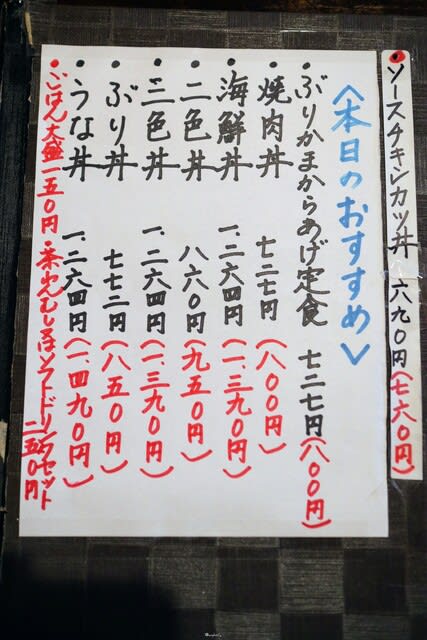 ソースチキンカツ丼 六九〇円(七六〇円)
<本日のおすすめ>
・ぶりかまからあげ定食 七二七円(八〇〇円)
・焼肉丼 七二七円(八〇〇円)
・海鮮丼 一.二六四円(一.三九〇円)
・二色丼 八六〇円(九五〇円)
・三色丼 一.二六四円(一.三九〇円)
・ぶり丼 七七二円(八五〇円)
・うな丼 一.二六四円(一.四九〇円)
・ごはん大盛一五〇円・茶わんむし又はソフトドリンクセット
二五〇円